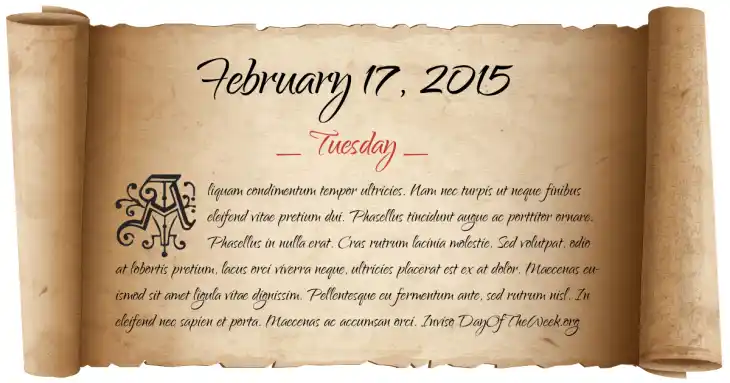 February 17, 2015
_ Tuesday _
Aliquam condimentum tempor ultricies. Nam nec turpis ut neque finibus
eleifend vitae pretium dui. Phasellus tincidunt augue ac porttitor ornare.
Phasellus in nulla erat. Cras rutrum lacinia molestie. Sed volutpat, odio
at lobortis pretium, lacus orci viverra neque, ultricies placerat est ex at dolor. Maecenas eu-
ismod sit amet ligula vitae dignissim. Pellentesque eu fermentum ante, sed rutrum nisl. In
eleifend nec sapien et porta. Maecenas ac accumsan orci. Inviso DayOfTheWeek.org